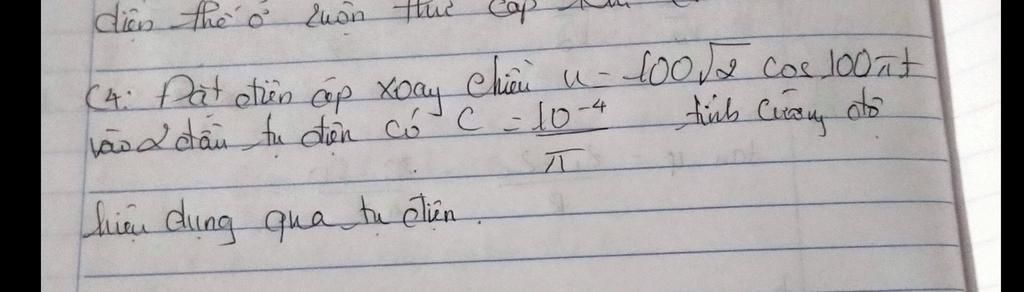 điện thế ở cuộn thứ cấp
C4: Đặt điện áp xoay chiều u = 100√2 cos 100πt
vào 2 đầu tụ điện có C = 10⁻⁴/π tính cường độ
hiệu dụng qua tụ điện.